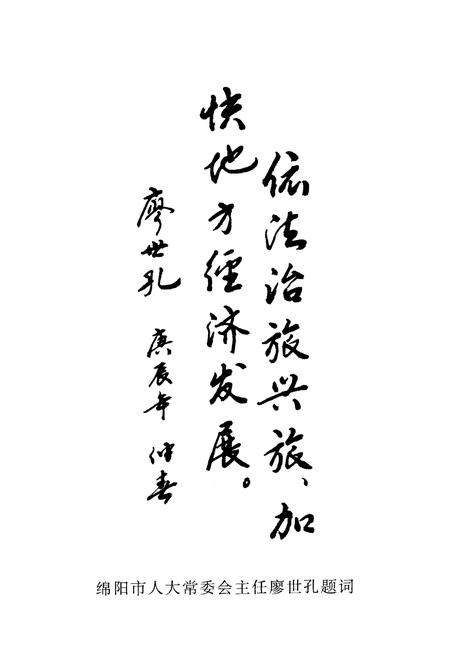 依法治旅兴旅、加
快地方經济发展。
廖世孔 庚辰年 仲春
绵阳市人大常委会主任廖世孔题词